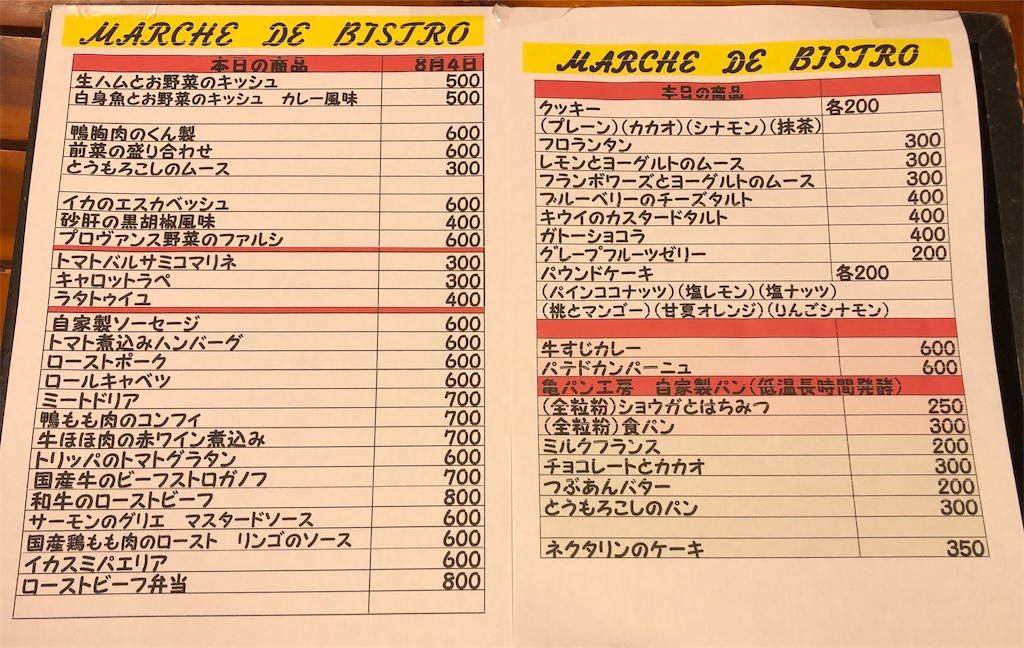 MARCHE DE BISTRO
本日の商品 8月4日
生ハムとお野菜のキッシュ 500
白身魚とお野菜のキッシュ カレー風味 500
鴨胸肉のくん製 600
前菜の盛り合わせ 600
とうもろこしのムース 300
イカのエスカベッシュ 600
砂肝の黒胡椒風味 400
プロヴァンス野菜のファルシ 600
トマトバルサミコマリネ 300
キャロットラペ 300
ラタトゥイユ 400
自家製ソーセージ 600
トマト煮込みハンバーグ 600
ローストポーク 600
ロールキャベツ 600
ミートドリア 700
鴨もも肉のコンフィ 700
牛ほほ肉の赤ワイン煮込み 700
トリッパのトマトグラタン 600
国産牛のビーフストロガノフ 700
和牛のローストビーフ 800
サーモンのグリエ マスタードソース 600
国産鶏もも肉のロースト リンゴのソース 600
イカスミパエリア 600
ローストビーフ弁当 800
MARCHE DE BISTRO
本日の商品
クッキー 各200
(プレーン)(カカオ)(シナモン)(抹茶)
フロランタン 300
レモンとヨーグルトのムース 300
フランボワーズとヨーグルトのムース 300
ブルーベリーのチーズタルト 400
キウイのカスタードタルト 400
ガトーショコラ 400
グレープフルーツゼリー 200
パウンドケーキ 各200
(パインココナッツ)(塩レモン)(塩ナッツ)
(桃とマンゴー)(甘夏オレンジ)(りんごシナモン)
牛すじカレー 600
パテドカンパーニュ 600
亀パン工房 自家製パン(低温長時間発酵)
(全粒粉)ショウガとはちみつ 250
(全粒粉)食パン 300
ミルクフランス 200
チョコレートとカカオ 300
つぶあんバター 200
とうもろこしのパン 300
ネクタリンのケーキ 350